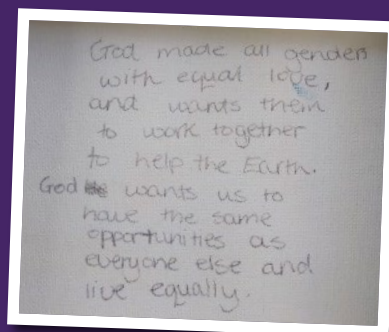 God made all genders
with equal love,
and wants them
to work together
to help the Earth.
God wants us to
have the same
opportunities as
everyone else and
live equally.